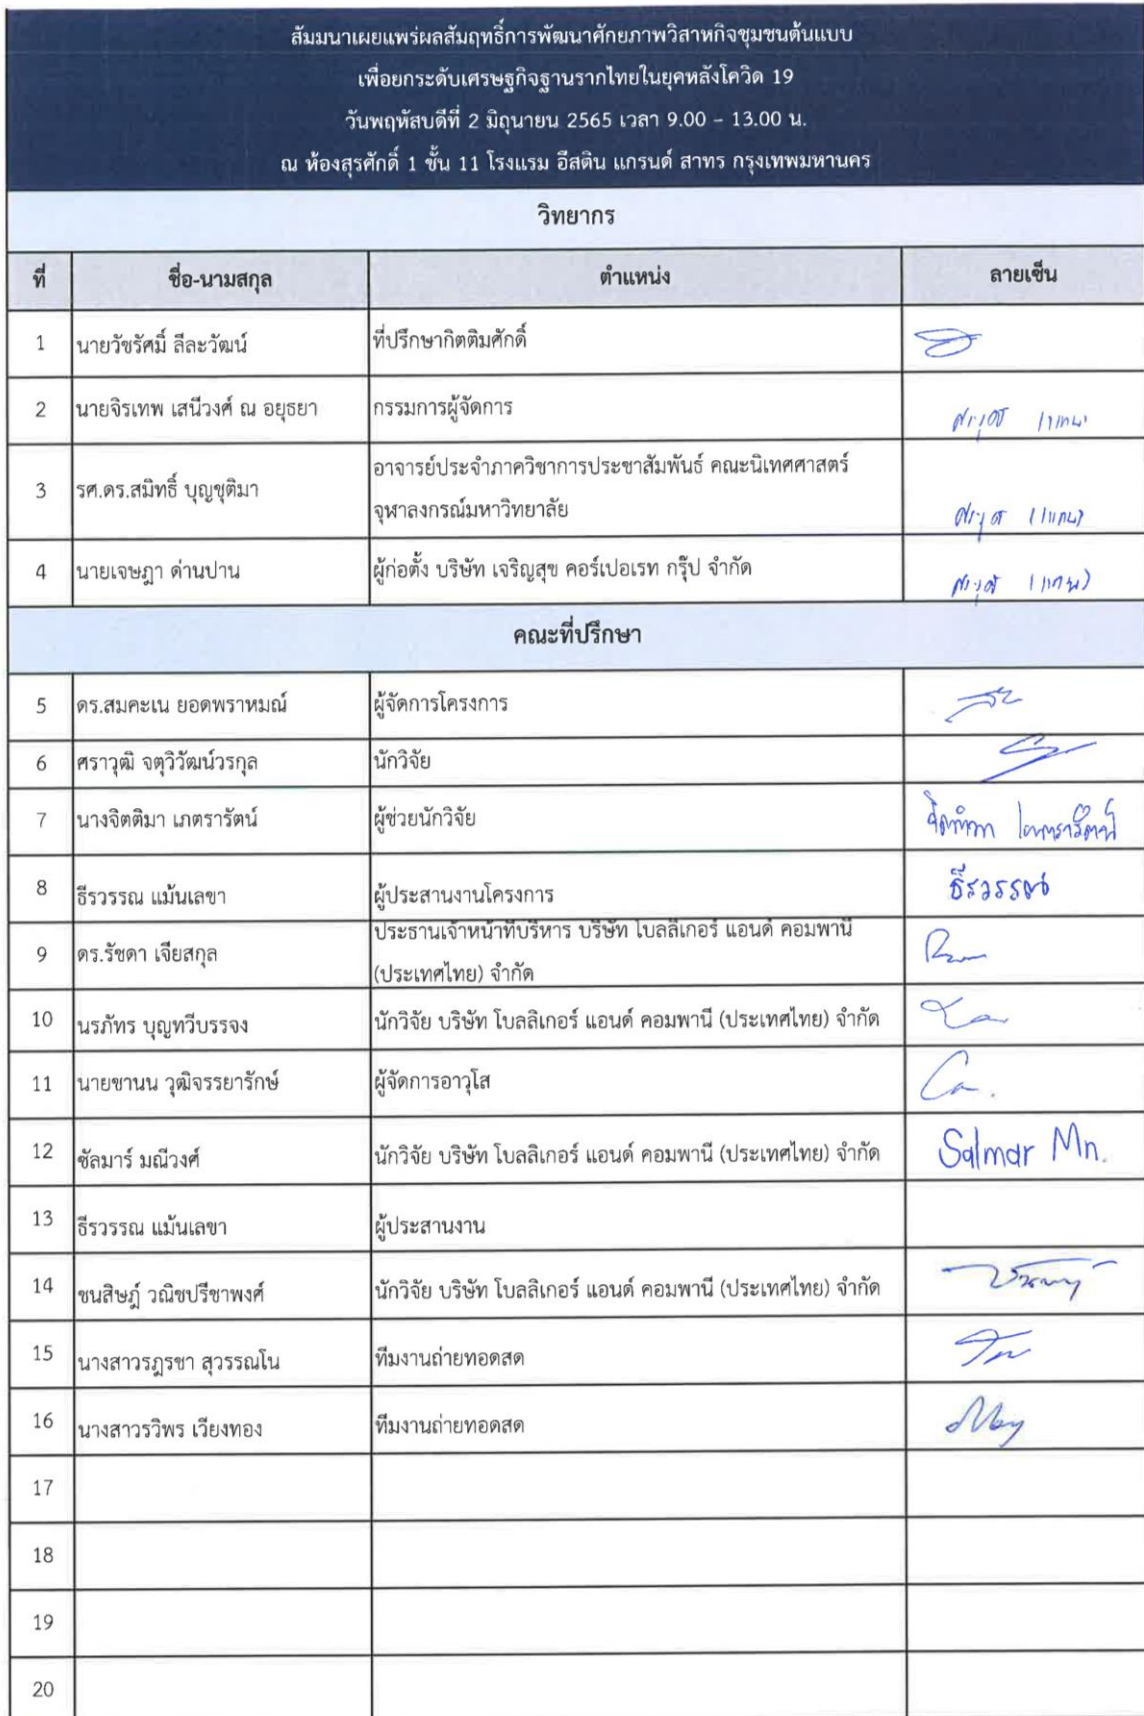 สัมมนาเผยแพร่ผลสัมฤทธิ์การพัฒนาศักยภาพวิสาหกิจชุมชนต้นแบบ
เพื่อยกระดับเศรษฐกิจฐานรากไทยในยุคหลังโควิด 19
วันพฤหัสบดีที่ 2 มิถุนายน 2565 เวลา 9.00 – 13.00 น.
ณ ห้องสุรศักดิ์ 1 ชั้น 11 โรงแรม อีสติน แกรนด์ สาทร กรุงเทพมหานคร
วิทยากร
ที่ ชื่อ-นามสกุล ตำแหน่ง ลายเซ็น
1 นายวัชรัศมิ์ ลีละวัฒน์ ที่ปรึกษากิตติมศักดิ์
2 นายจิรเทพ เสนีวงศ์ ณ อยุธยา กรรมการผู้จัดการ
3 รศ.ดร.สมิทธิ์ บุญชุติมา อาจารย์ประจำภาควิชาการประชาสัมพันธ์ คณะนิเทศศาสตร์
จุฬาลงกรณ์มหาวิทยาลัย
4 นายเจษฎา ด่านปาน ผู้ก่อตั้ง บริษัท เจริญสุข คอร์เปอเรท กรุ๊ป จำกัด
คณะที่ปรึกษา
5 ดร.สมคะเน ยอดพราหมณ์ ผู้จัดการโครงการ
6 ศราวุฒิ จตุวิวัฒน์วรกุล นักวิจัย
7 นางจิตติมา เภตรารัตน์ ผู้ช่วยนักวิจัย จิตติมา เภตรารัตน์
8 ธีรวรรณ แม้นเลขา ผู้ประสานงานโครงการ ธีรวรรณ
9 ดร.รัชดา เจียสกุล ประธานเจ้าหน้าที่บริหาร บริษัท ไบลลิเกอร์ แอนด์ คอมพานี
(ประเทศไทย) จำกัด
10 นรภัทร บุญทวีบรรจง นักวิจัย บริษัท โบลลิเกอร์ แอนด์ คอมพานี (ประเทศไทย) จำกัด
11 นายชานน วุฒิจรรยารักษ์ ผู้จัดการอาวุโส
12 ซัลมาร์ มณีวงศ์ นักวิจัย บริษัท โบลลิเกอร์ แอนด์ คอมพานี (ประเทศไทย) จำกัด Salmar Mn.
13 ธีรวรรณ แม้นเลขา ผู้ประสานงาน
14 ชนสิษฎ์ วณิชปรีชาพงศ์ นักวิจัย บริษัท โบลลิเกอร์ แอนด์ คอมพานี (ประเทศไทย) จำกัด
15 นางสาวรฎรชา สุวรรณโน ทีมงานถ่ายทอดสด
16 นางสาวรวิพร เวียงทอง ทีมงานถ่ายทอดสด
17
18
19
20